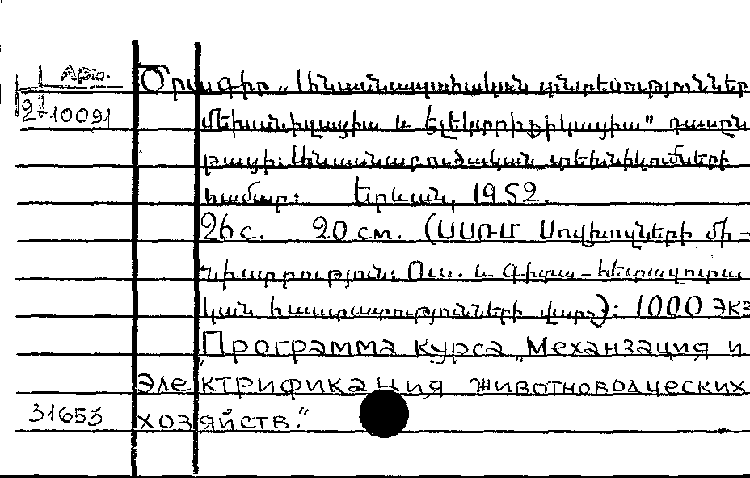 Արտ.
Ծրագիր „Անասնապահական տնտեսություններ
2-10091
մեխանիզացիա և էլեկտրիֆիկացիա" դասըն
թացի Անասնաբուծական տեխնիկումների
համար: Երևան, 1952.
26 с. 20 см. (ՍՍՌՄ Սովխոզների մի-
նիստրություն: Ուս. և
կան հաստատությունների վարչ): 1000 экз
"Программа курса „Механзация и
электрификация животноводческих
31653 хозяйств."